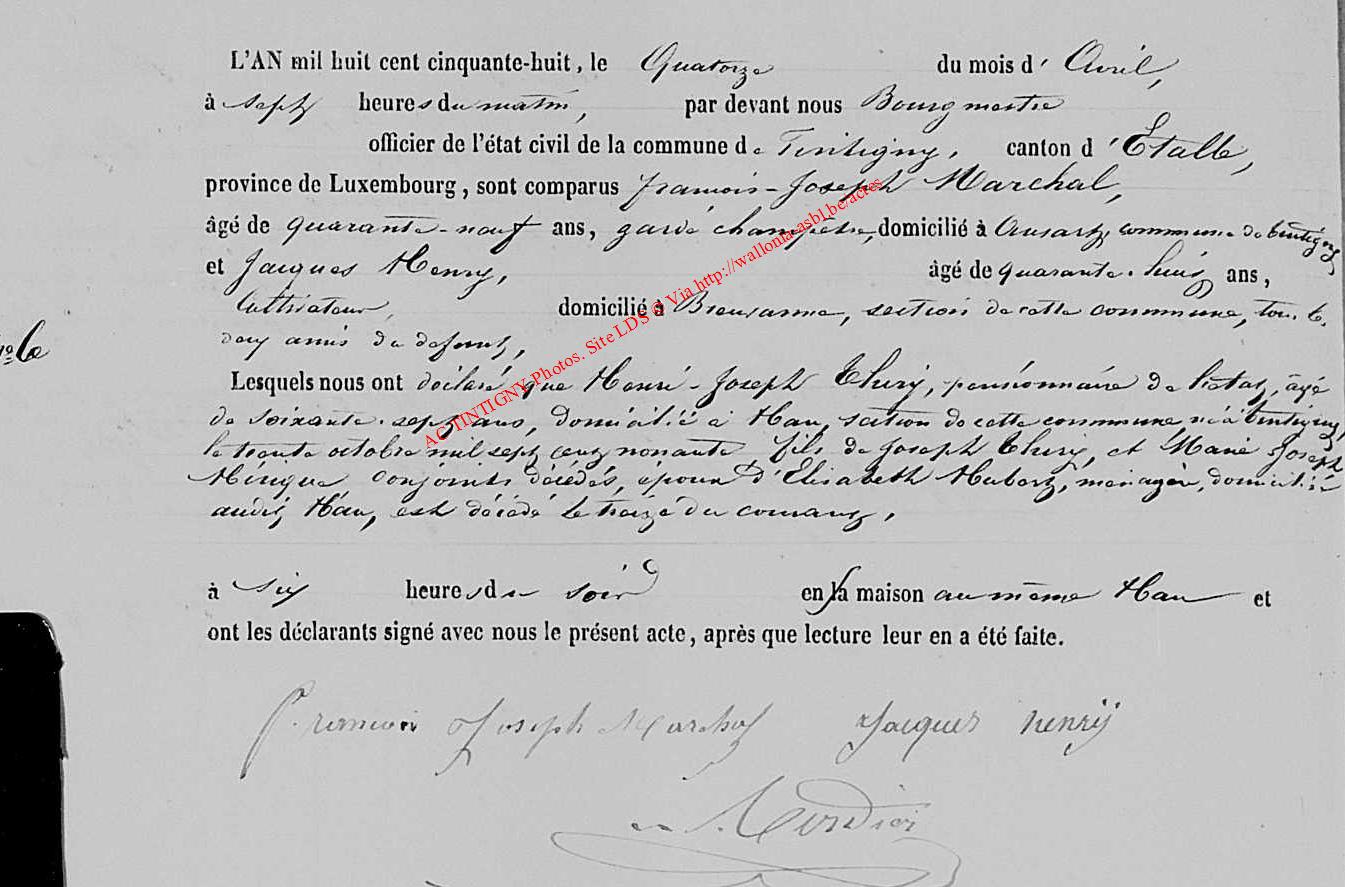 L'AN mil huit cent cinquante-huit, le Quatorze du mois d' Avril,
à sept heures du matin, par devant nous Bourgmestre
officier de l'état civil de la commune de Tintigny, canton d'Etalle,
province de Luxembourg, sont comparus François-Joseph Marchal,
âgé de quarante-neuf ans, garde champêtre, domicilié à Ansart, commune de tintigny
et Jacques Henry, âgé de quarante-huit ans,
Cultivateur, domicilié à Breuvanne, section de cette commune, tous les
deux amis du defunt,
N° 6
Lesquels nous ont déclaré que Henri-Joseph Thiry, pensionnaire de l'état, âgé
de soixante-sept ans, domicilié à Han, section de cette commune, né à tintigny,
le trente octobre mil sept cent nonante fils de Joseph Thiry, et Marie Joseph
conjoints décédés, époux d'Elisabeth Hubert, ménagère, domiciliée
audit Han, est décédé le treize du courant,
à six heures du soir en sa maison au même Han et
ont les déclarants signé avec nous le présent acte, après que lecture leur en a été faite.
François Joseph Marchal Jacques henrÿ
AC TINTIGNY-Photos. Site LDS © Via http://wallonia-asbl.be/acres